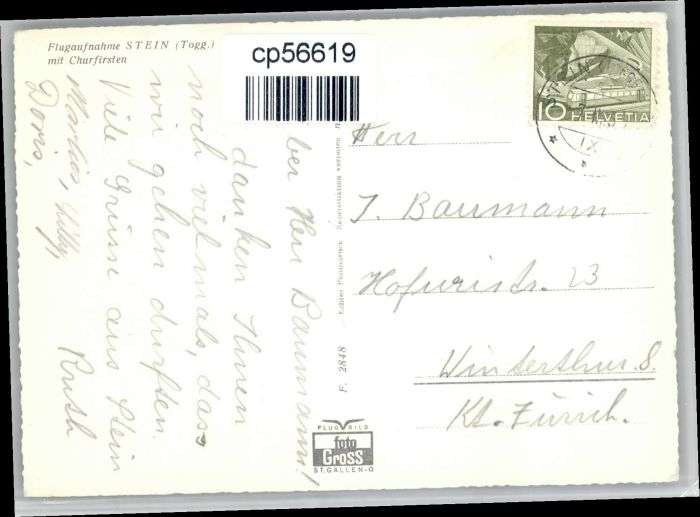 Flugaufnahme STEIN (Togg.)
mit Churfirsten
cp56619
10 HELVETIA
ber Herr Baumann!
danken Ihnen
noch vielmals, dass
wir gehen durften.
Viele Grüsse aus Stein
Ruth
Doris,
Herr
J. Baumann
Hofuristr. 23
Winterthur 8.
Kt. Zürich.
F. 2848
Echter Photodruck
FLUGBILD
foto
Gross
ST. GALLEN-O